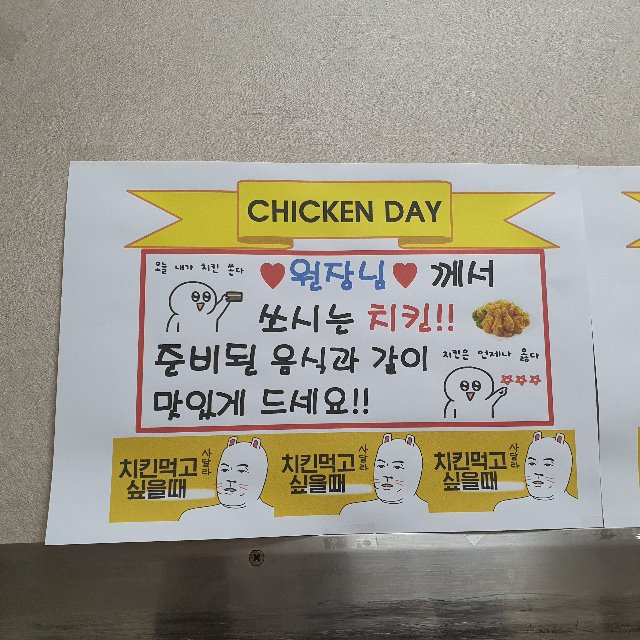 CHICKEN DAY
오늘 내가 치킨 쏜다
♥원장님♥ 께서
쏘시는 치킨!!
준비된 음식과 같이
치킨은 언제나 옳다
맛있게 드세요!!
치킨먹고
싶을때
사달라
치킨먹고
싶을때
사달라
치킨먹고
싶을때
사달라